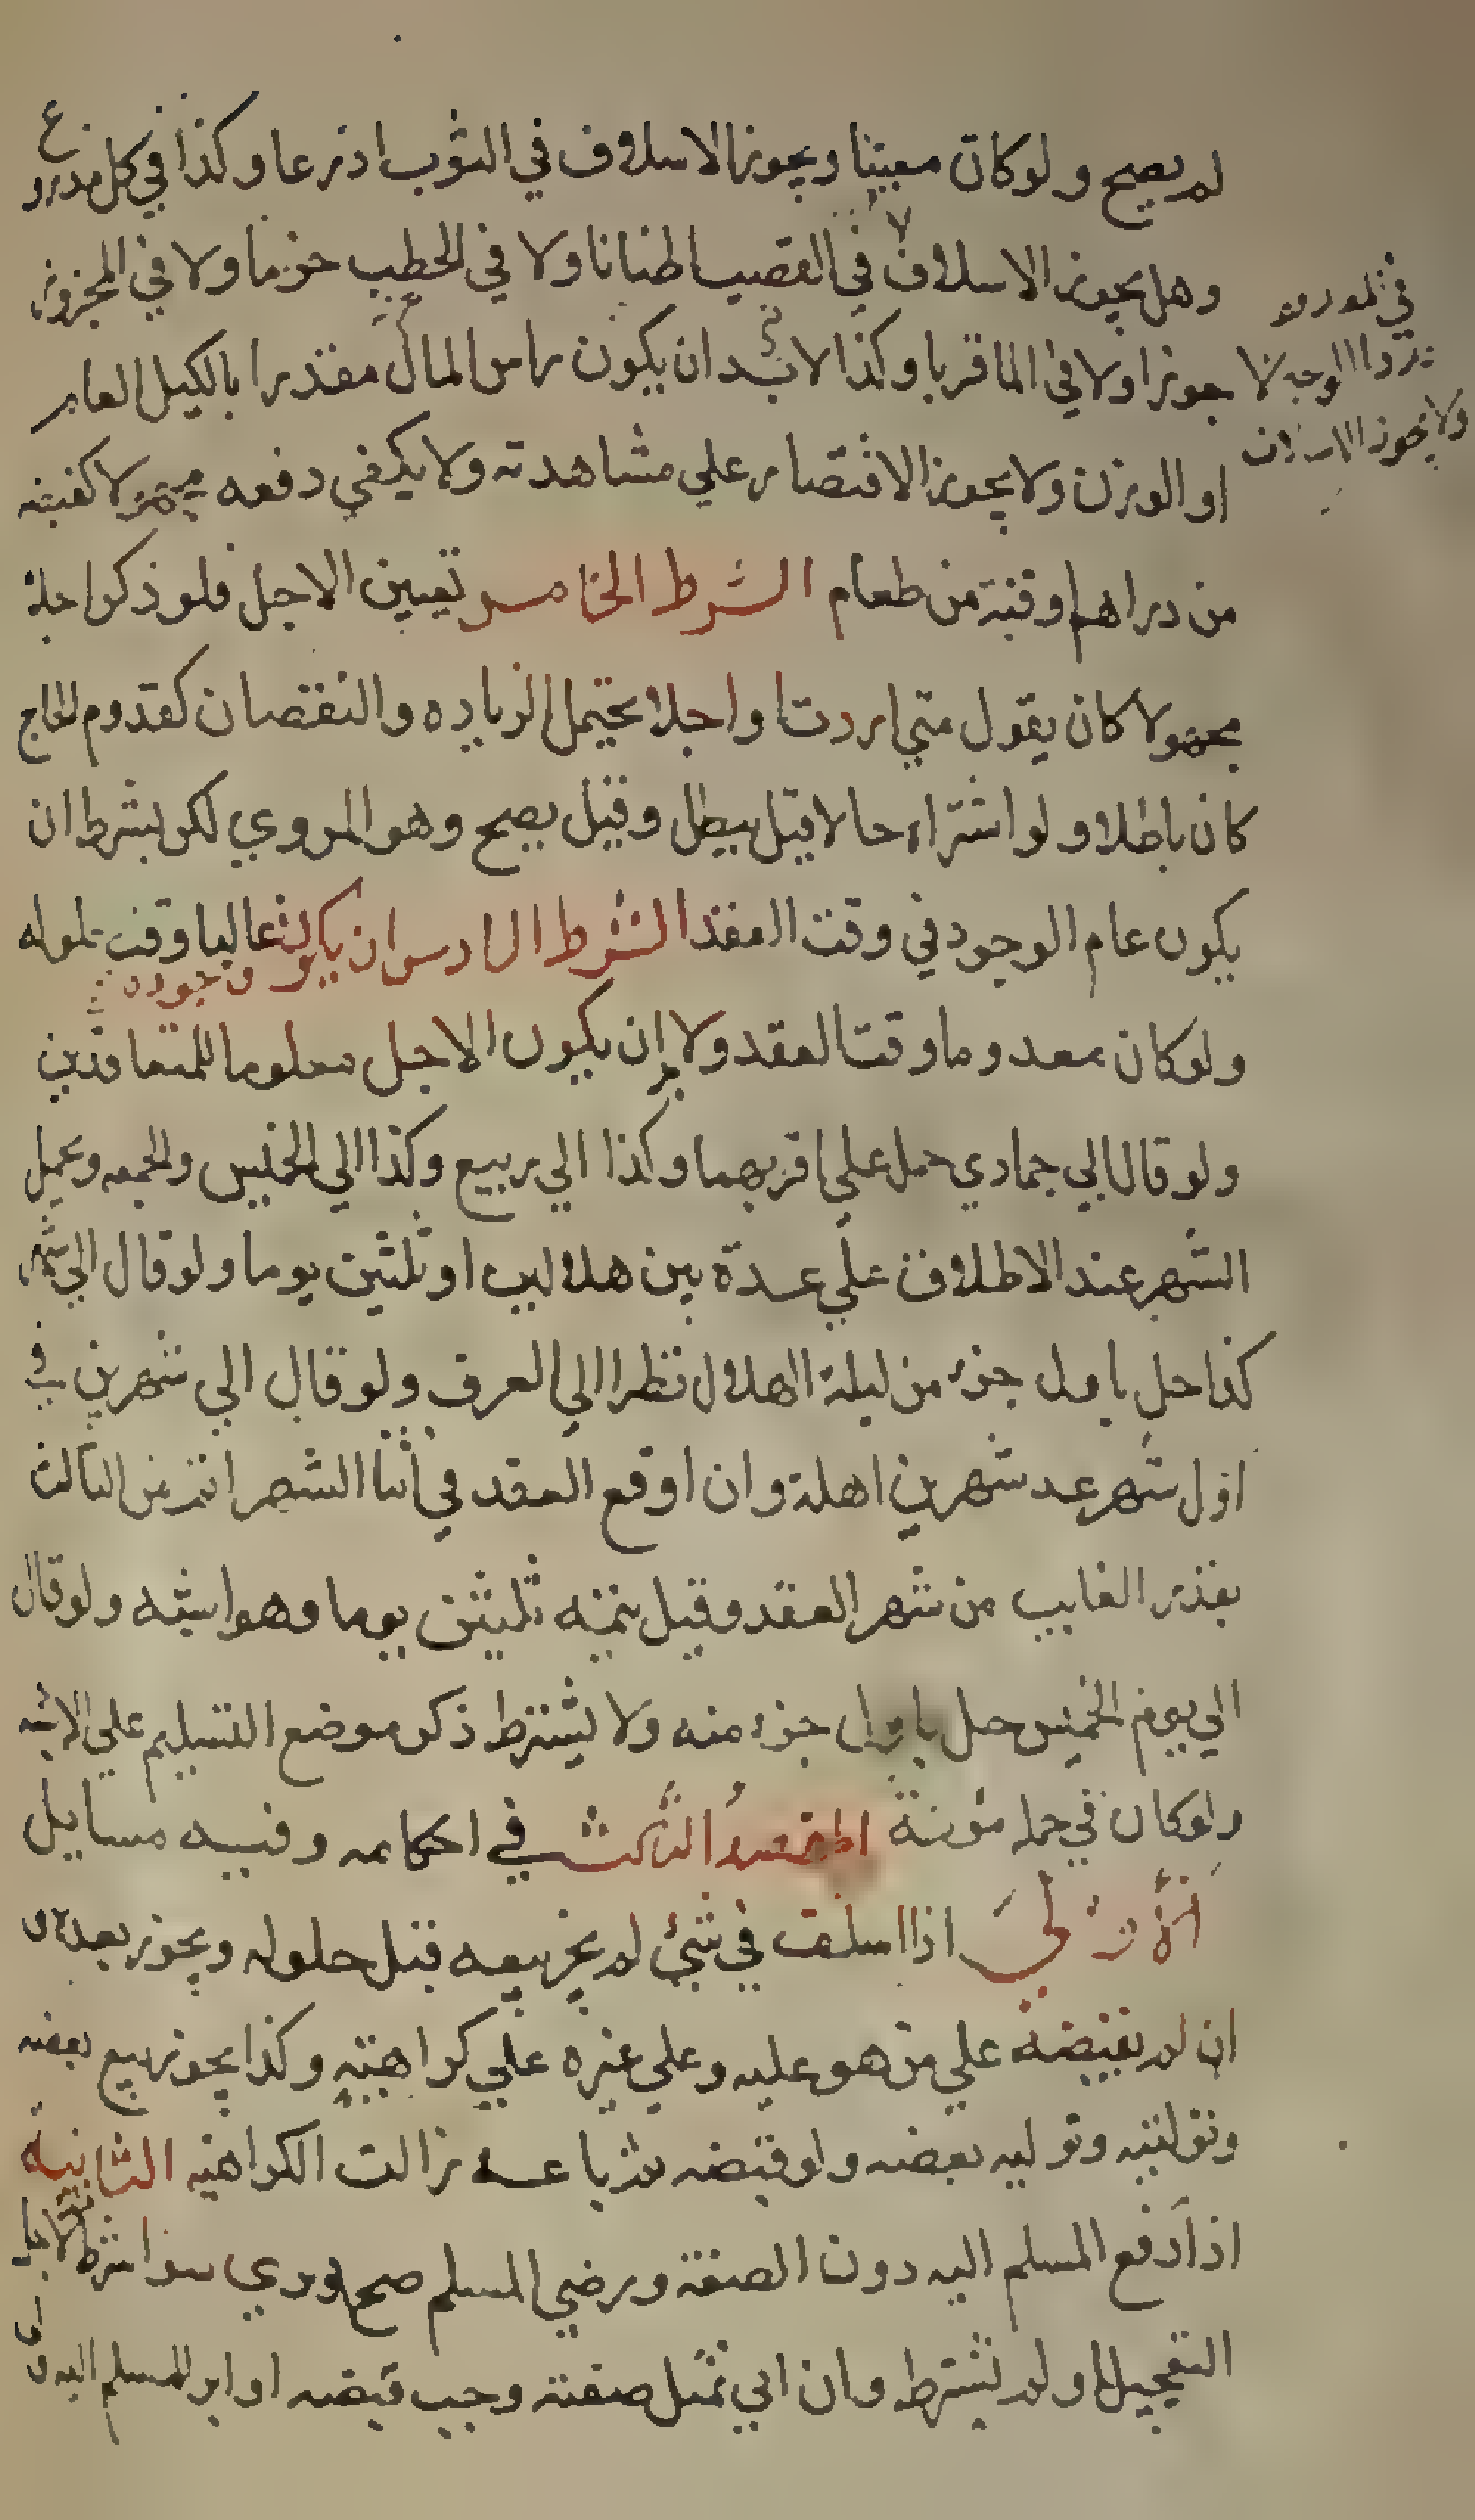 لم يصح ولو كان معينا ويجوز الاسلاف في الثوب اذرعا وكذا في كل مذروع
وهل يجوز الاسلاف في القصب اطنانا ولا في الحطب حزما ولا في المجزوز
جوزا ولا في الما قربا وكذا لا بد ان يكون راس المال مقدرا بالكيل العام
او الوزن ولا يجوز الاقتصار على مشاهدته ولا يكفي دفعه مجهولا كقبضه
من دراهم او قبة من طعام الشرط الخامس تعيين الاجل فلو ذكر اجلا
مجهولا كان يقول متي اردت او اجلا يحتمل الزياده والنقصان كقدوم الحاج
كان باطلا ولو اشتراه حالا قيل يبطل وقيل يصح وهو المروي لكن بشرط ان
يكون عام الوجود في وقت العقد الشرط السادس ان يكون وجوده غالبا وقت حلوله
ولو كان معدوما وقت العقد ولا بد ان يكون الاجل معلوما للمتعاقدين
ولو قال الي جمادي حمل علي اقربهما وكذا الي ربيع وكذا الي الخميس والجمعه ويحمل
الشهر عند الاطلاق علي عدة بين هلالين او ثلثين يوما ولو قال الي شهر
كذا حل باول جزء من ليلة الهلال نظرا الي العرف ولو قال الي شهرين في
اول شهر عد شهرين اهلة وان اوقع العقد في اثنا الشهر اتم من الثالث
بقدر الفايت من شهر العقد وقيل يتمه ثلثين يوما وهو اشبه ولو قال
الي يوم الخميس حل باول جزء منه ولا يشترط ذكر موضع التسليم علي الاشبه
ولو كان في حمله مؤنة المقصد الثالث في احكامه وفيه مسايل
الاولي اذا اسلف في شئ لم يجز بيعه قبل حلوله ويجوز بعده و
ان لم يقبضه علي من هو عليه وعلي غيره علي كراهية وكذا يجوز بيع بعضه
وتوليته وتوليه بعضه ولو قبضه ثم باعه زالت الكراهية الثانية
اذا دفع المسلم اليه دون الصفة ورضي المسلم صح وبري سوا شرط لاجل
التعجيل او لم يشترط وان اتي بمثل صفته وجب قبضه او ابرا المسلم اليه و
في الجلود
تردد الوجه لا
ولا يجوز الاسلاف